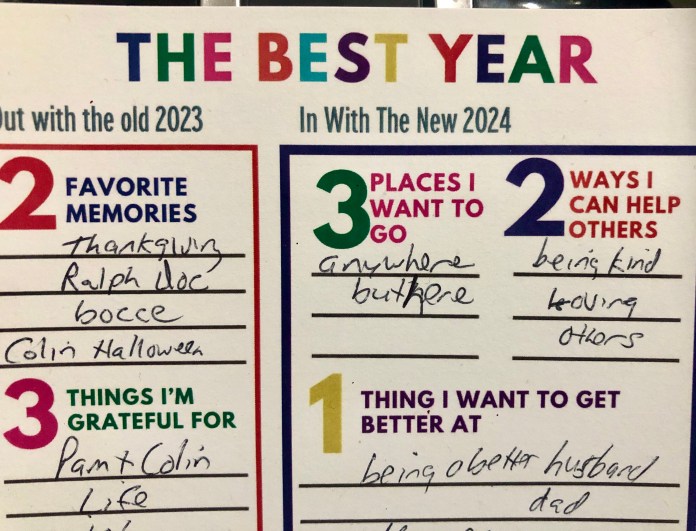 THE BEST YEAR
Out with the old 2023
2 FAVORITE
MEMORIES
Thankgiving
Ralph
bocce
Colin Halloween
3 THINGS I'M
GRATEFUL FOR
Pam + Colin
Life
In With The New 2024
3 PLACES I
WANT TO
GO
anywhere
but here
2 WAYS I
CAN HELP
OTHERS
being kind
loving
others
1 THING I WANT TO GET
BETTER AT
being a better husband
dad